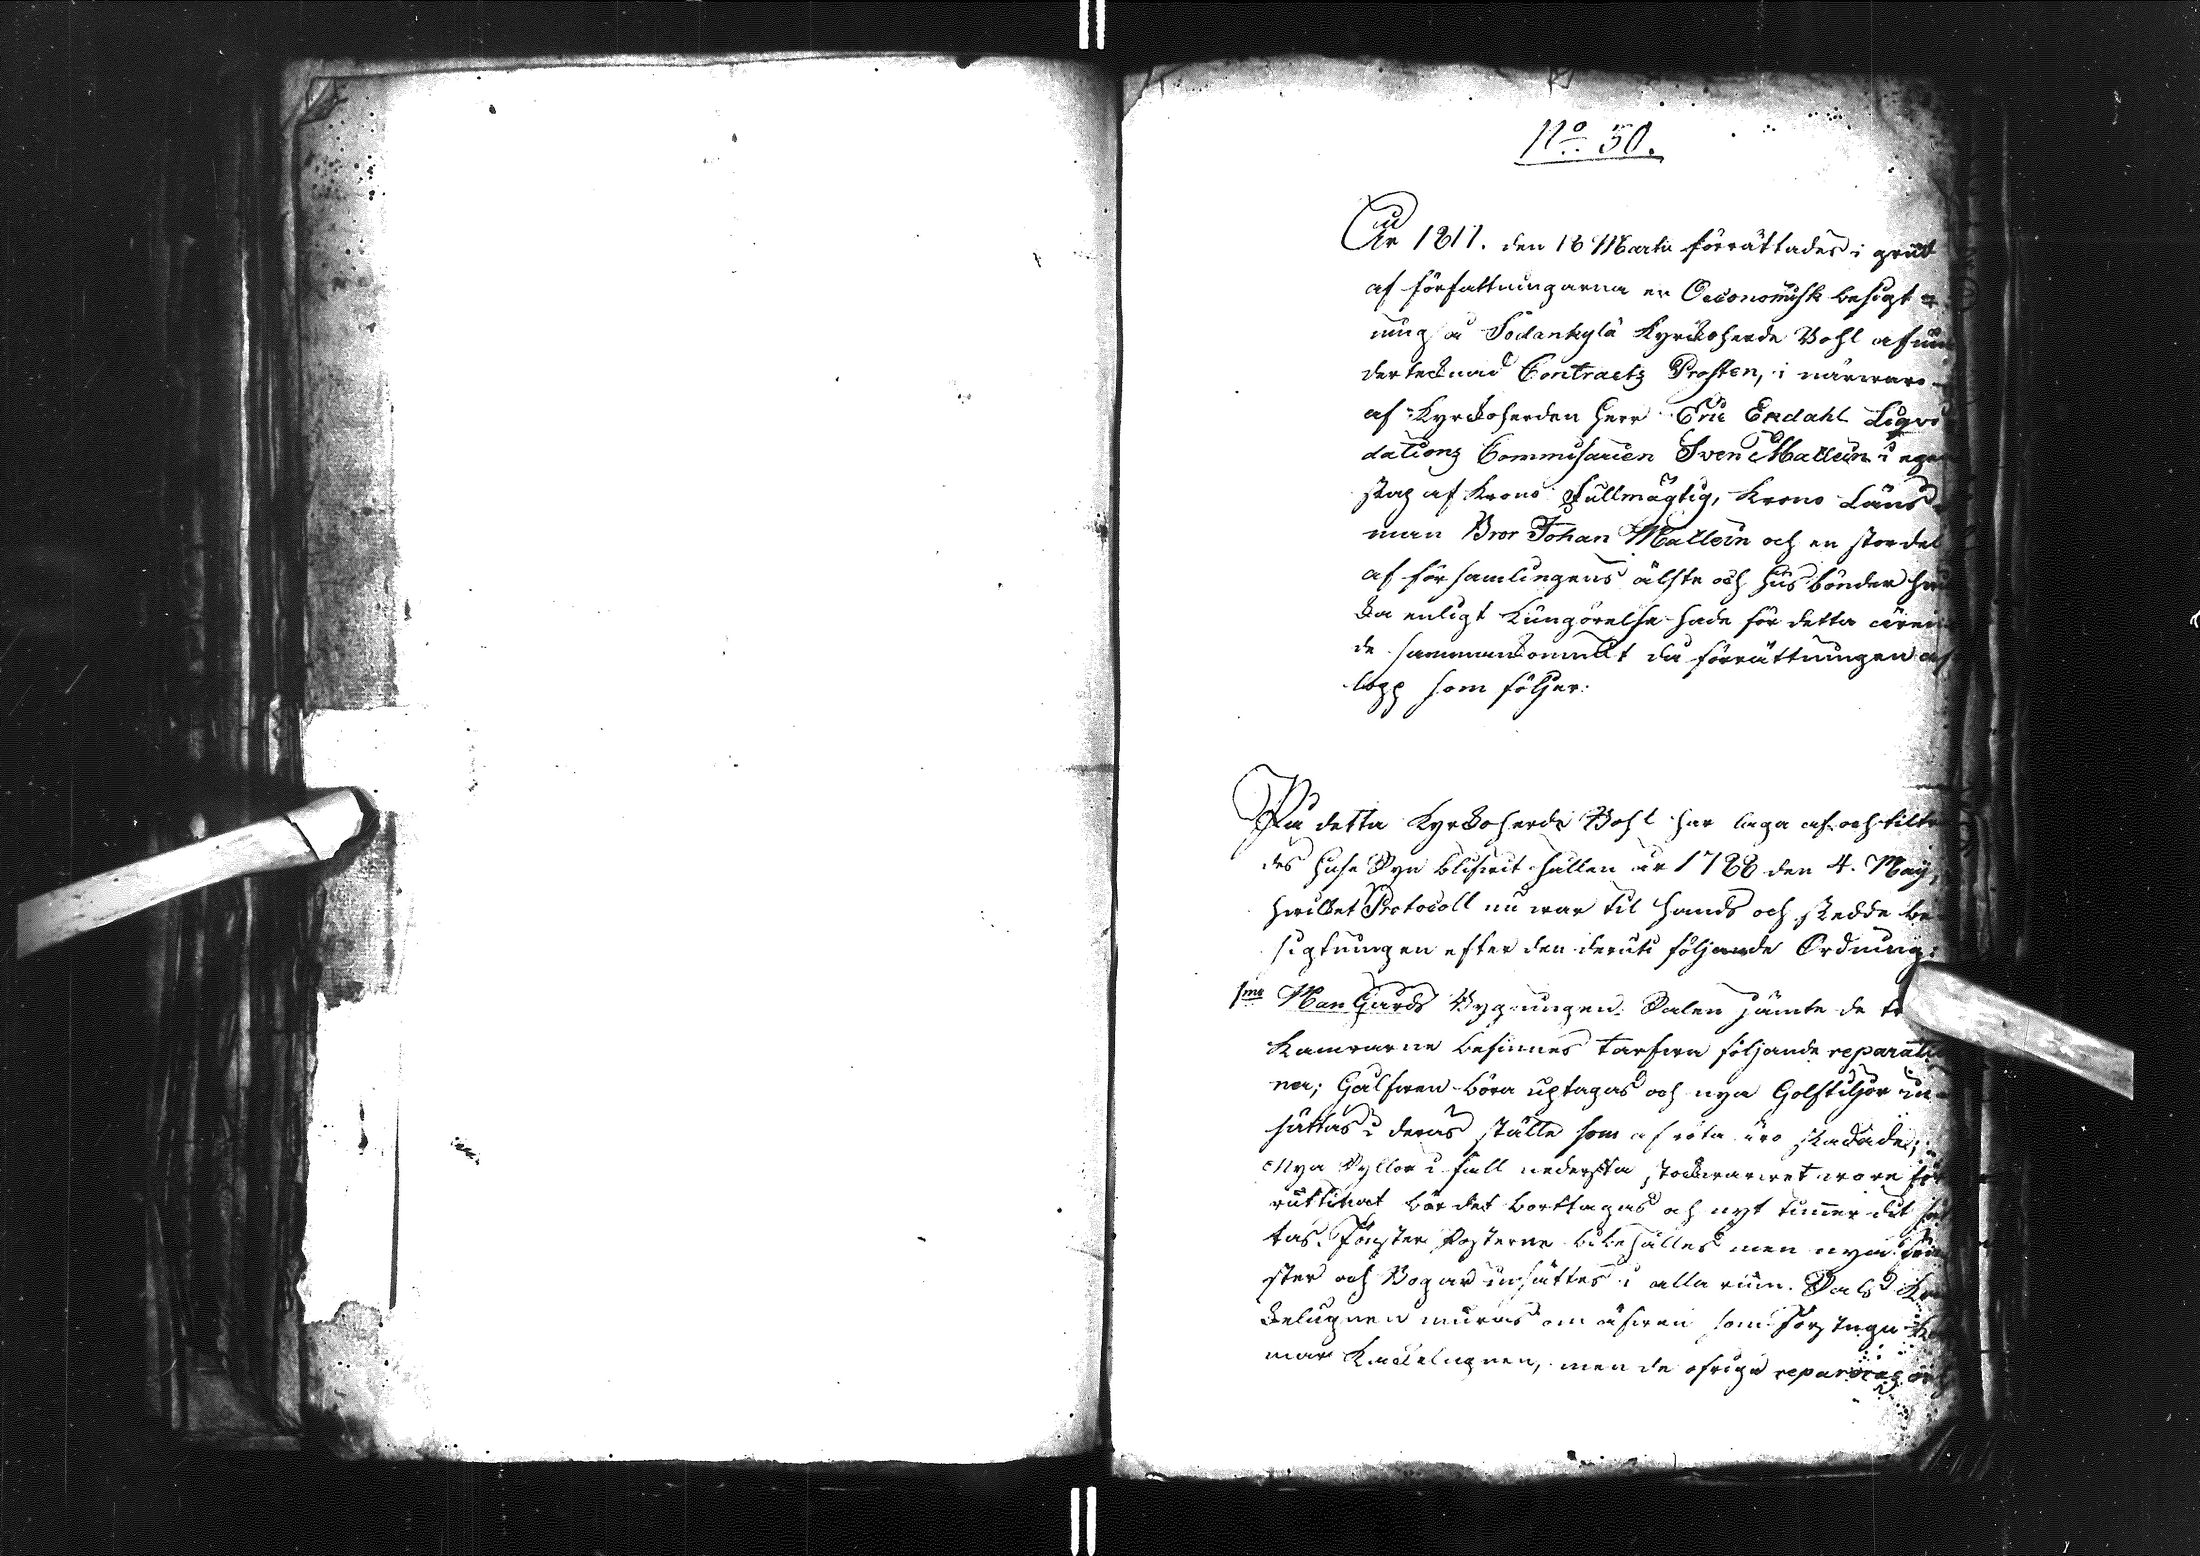 No 50.
År 1811. den 18 Martii förrättades i grund
af författningarna en Oeconomisk besigt
ning å Sodankylä Kyrckoherde Bohl af un
dertecknad Contracts Prosten, i närwaro
af Kyrckoherden Herr Eric Ekdahl Liqvi
dations Commisarien Sven Mallein i egen
skap af Krono Fullmägtig, Krono Läns
man Bror Johan Mallein och en stor del
af församlingens älste och Husbönder hwil
ka enligt Kungörelse hade för detta ären
de sammankommit då förrättningen af
lopp som följer:
På detta Kyrckoherde Bohl har laga af och tilträ
des Huse Syn blifwit hållen år 1788 den 4. Maij,
hwilket Protocoll nu war til hands och skedde be
sigtningen efter den deruti följande Ordning:
1mo Man Gårds Bygnungen. Salen jämte de
Kamrarne befinnes tarfwa följande reparatio
ner; Golfwen böra uptagas och nya Golftiljor in
sättas i deras ställe som af röta äro skadade;
Nya Syllor i fall nedersta stockwarwet wore för
ruttnat bör det borttagas och nytt timmer dit sät
tas. Fönster Posterne bibehålles men nya Fön
ster och Bogar insättes i alla rum. Sals Ka
kelugnen muras om äfwen som Förstugu Ka
mar Kackelugnen, men de öfriga repareras